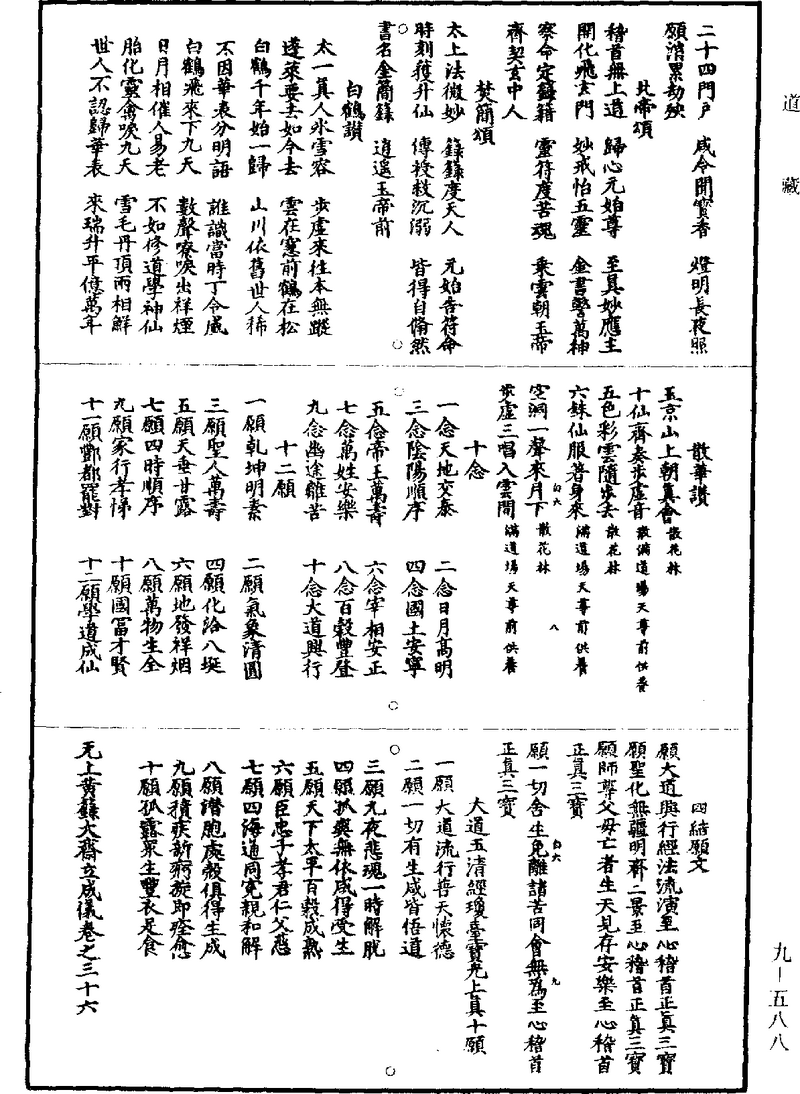 道藏
二十四門戶　咸令開寶香　燈明長夜照
願消累劫殃
北帝頌
稽首無上道　歸心元始尊　至真妙應主
開化飛玄門　妙戒怡五靈　金書警萬神
察命定錄籍　靈符度苦魂　乘雲朝玉帝
齊契玄中人
焚簡頌
太上法微妙　錄錄度天人　元始告符命
時刻獲升仙　傳授救沉溺　皆得自翛然
書名金簡錄　逍遥玉帝前
白鶴讚
太一真人氷雪容　步虛來往本無蹤
蓬萊要去如今去　雲在寥前鶴在松
白鶴千年始一歸　山川依舊世人稀
不因華表分明語　誰識當時丁令威
白鶴飛來下九天　數聲嘹唳出祥煙
日月相催人易老　不如修道學神仙
胎化靈禽唳九天　雪毛丹頂兩相鮮
世人不認歸華表　來瑞升平億萬年
散華讚
玉京山上朝真會散花林
十仙齊奏步虛音散滿道場天尊前供養
五色彩雲隨步去散花林
六銖仙服著身來滿道場天尊前供養
空洞一聲來月下散花林
步虛三唱入雲間滿道場天尊前供養
白六　八
十念
一念天地交泰　二念日月高明
三念陰陽順序　四念國土安寧
五念帝王萬壽　六念宰相安正
七念萬姓安樂　八念百穀豐登
九念幽途離苦　十念大道興行
十二願
一願乾坤明素　二願氣象清圓
三願聖人萬壽　四願化洽八埏
五願天垂甘露　六願地發祥烟
七願四時順序　八願萬物生全
九願家行孝悌　十願國富才賢
十一願酆都罷對　十二願學道成仙
四結願文
願大道興行經法流演至心稽首正真三寶
願聖化無疆明齊二景至心稽首正真三寶
願師尊父母亡者生天見存安樂至心稽首
正真三寶
願一切含生免離諸苦同會無為至心稽首
正真三寶
白六　九
大道五清經瓊臺寶光上真十願
一願大道流行善天懷德
二願一切有生咸皆悟道
三願九夜悲魂一時解脫
四願孤煢無依咸得受生
五願天下太平百穀成熟
六願臣忠子孝君仁父慈
七願四海通同寃親和解
八願潛胞處穀俱得生成
九願積疾新痾旋即痊愈
十願孤露眾生豐衣足食
无上黃籙大齋立成儀卷之三十六
九—五八八